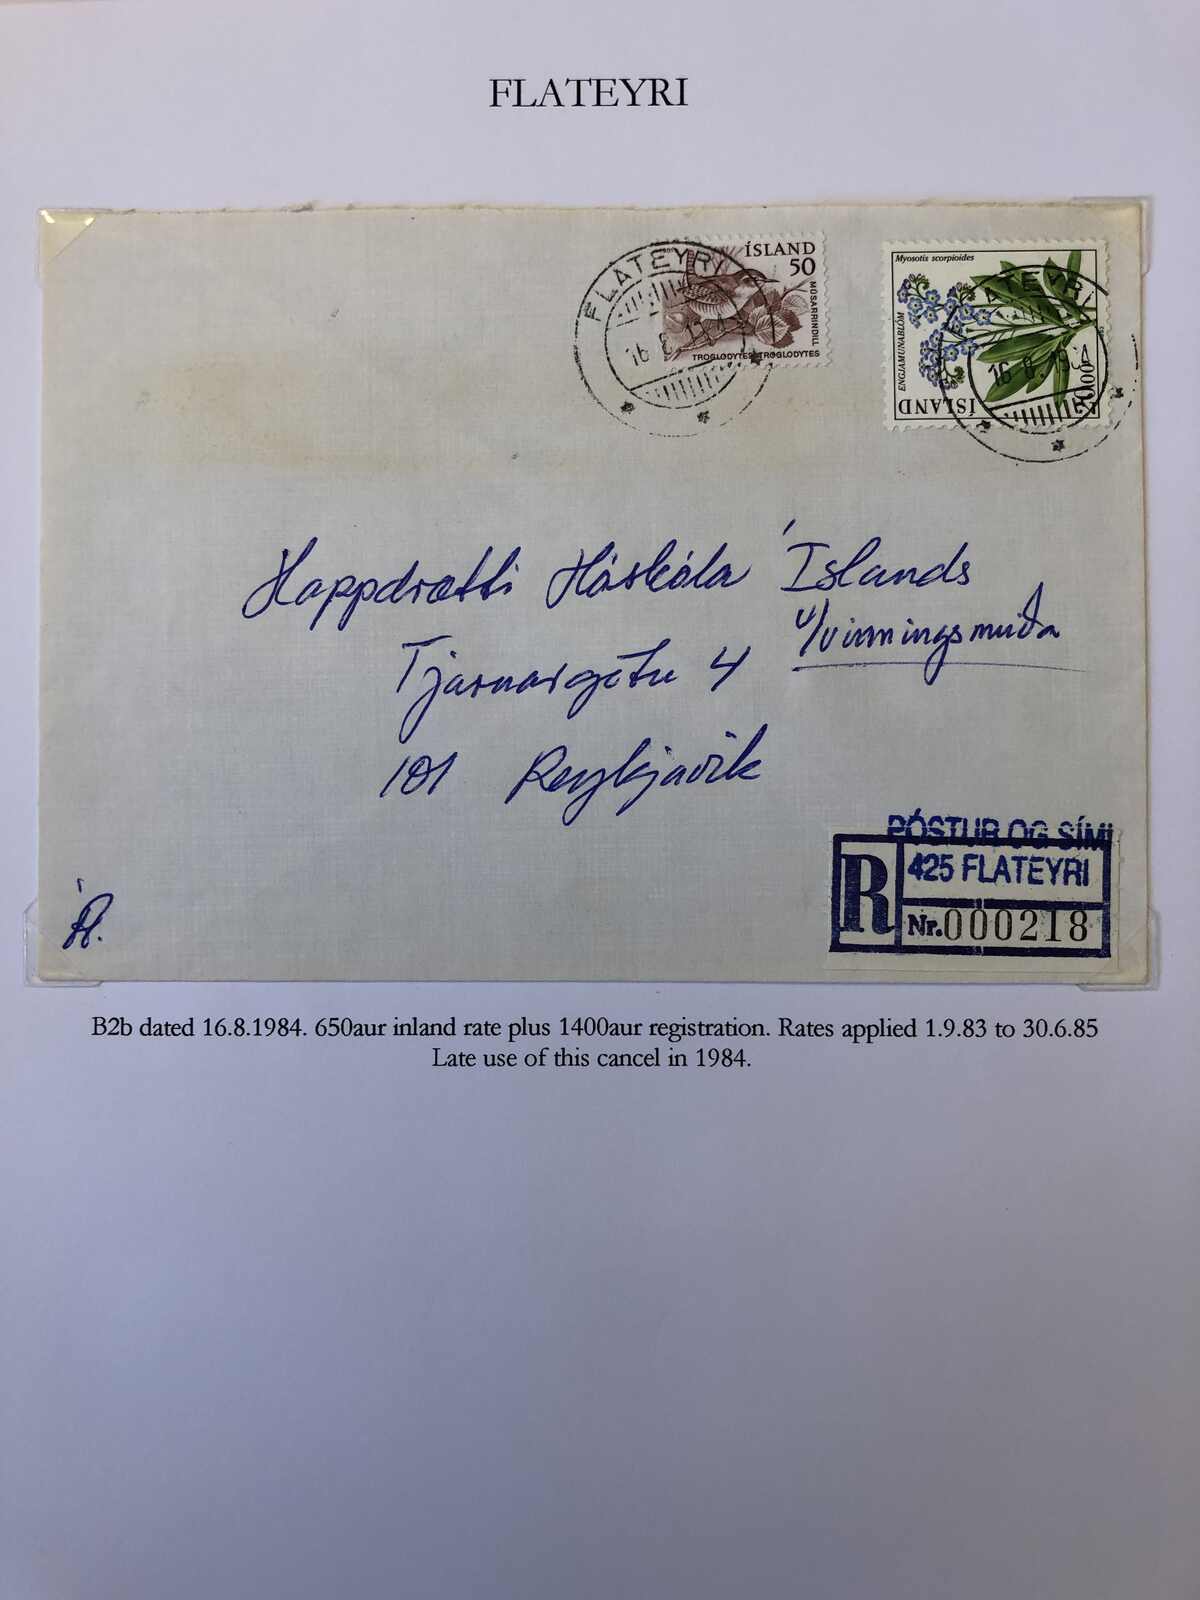 FLATEYRI
FLATEYRI
16.8.1984
ÍSLAND
50
MÚSARRINDILL
TROGLODYTES TROGLODYTES
Myosotis scorpioides
ENGJAMUNABLÓM
ÍSLAND
20.00
ATEYRI
16.8.1984
Happdrætti Háskóla Íslands
v/vinningsmiða
Tjarnargötu 4
101 Reykjavik
Á.
PÓSTUR OG SÍMI
R
425 FLATEYRI
Nr.000218
B2b dated 16.8.1984. 650aur inland rate plus 1400aur registration. Rates applied 1.9.83 to 30.6.85
Late use of this cancel in 1984.